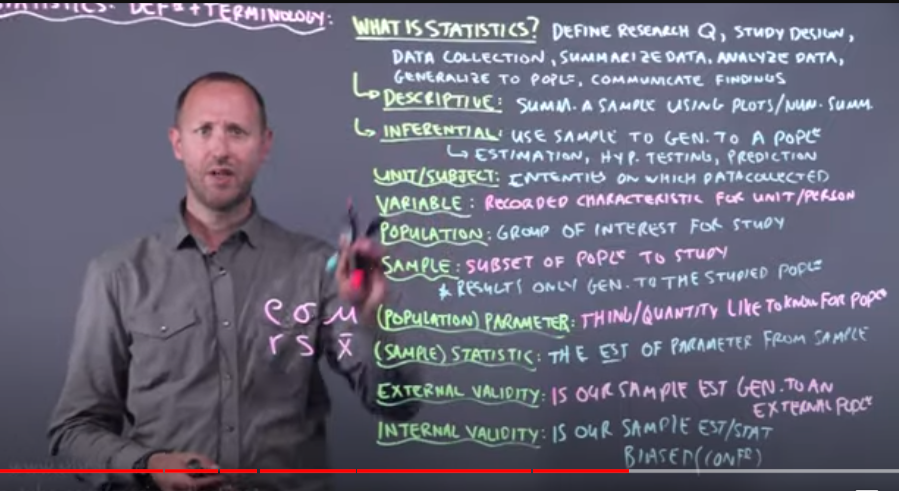 STATISTICS: DEFⁿˢ + TERMINOLOGY:
WHAT IS STATISTICS? DEFINE RESEARCH Q, STUDY DESIGN,
DATA COLLECTION, SUMMARIZE DATA, ANALYZE DATA,
GENERALIZE TO POPLᴱ, COMMUNICATE FINDINGS
↳ DESCRIPTIVE: SUMM. A SAMPLE USING PLOTS/NUM. SUMM
↳ INFERENTIAL: USE SAMPLE TO GEN. TO A POPLᴱ
↳ ESTIMATION, HYP. TESTING, PREDICTION
UNIT/SUBJECT: INTENTIES ON WHICH DATA COLLECTED
VARIABLE: RECORDED CHARACTERISTIC FOR UNIT/PERSON
POPULATION: GROUP OF INTEREST FOR STUDY
SAMPLE: SUBSET OF POPLᴱ TO STUDY
* RESULTS ONLY GEN. TO THE STUDIED POPLᴱ
ρ σ μ (POPULATION) PARAMETER: THING/QUANTITY LIKE TO KNOW FOR POPLᴱ
r s x̄ (SAMPLE) STATISTIC: THE EST OF PARAMETER FROM SAMPLE
EXTERNAL VALIDITY: IS OUR SAMPLE EST GEN. TO AN
EXTERNAL POPLᴱ
INTERNAL VALIDITY: IS OUR SAMPLE EST/STAT
BIASED (CONFᴰ)